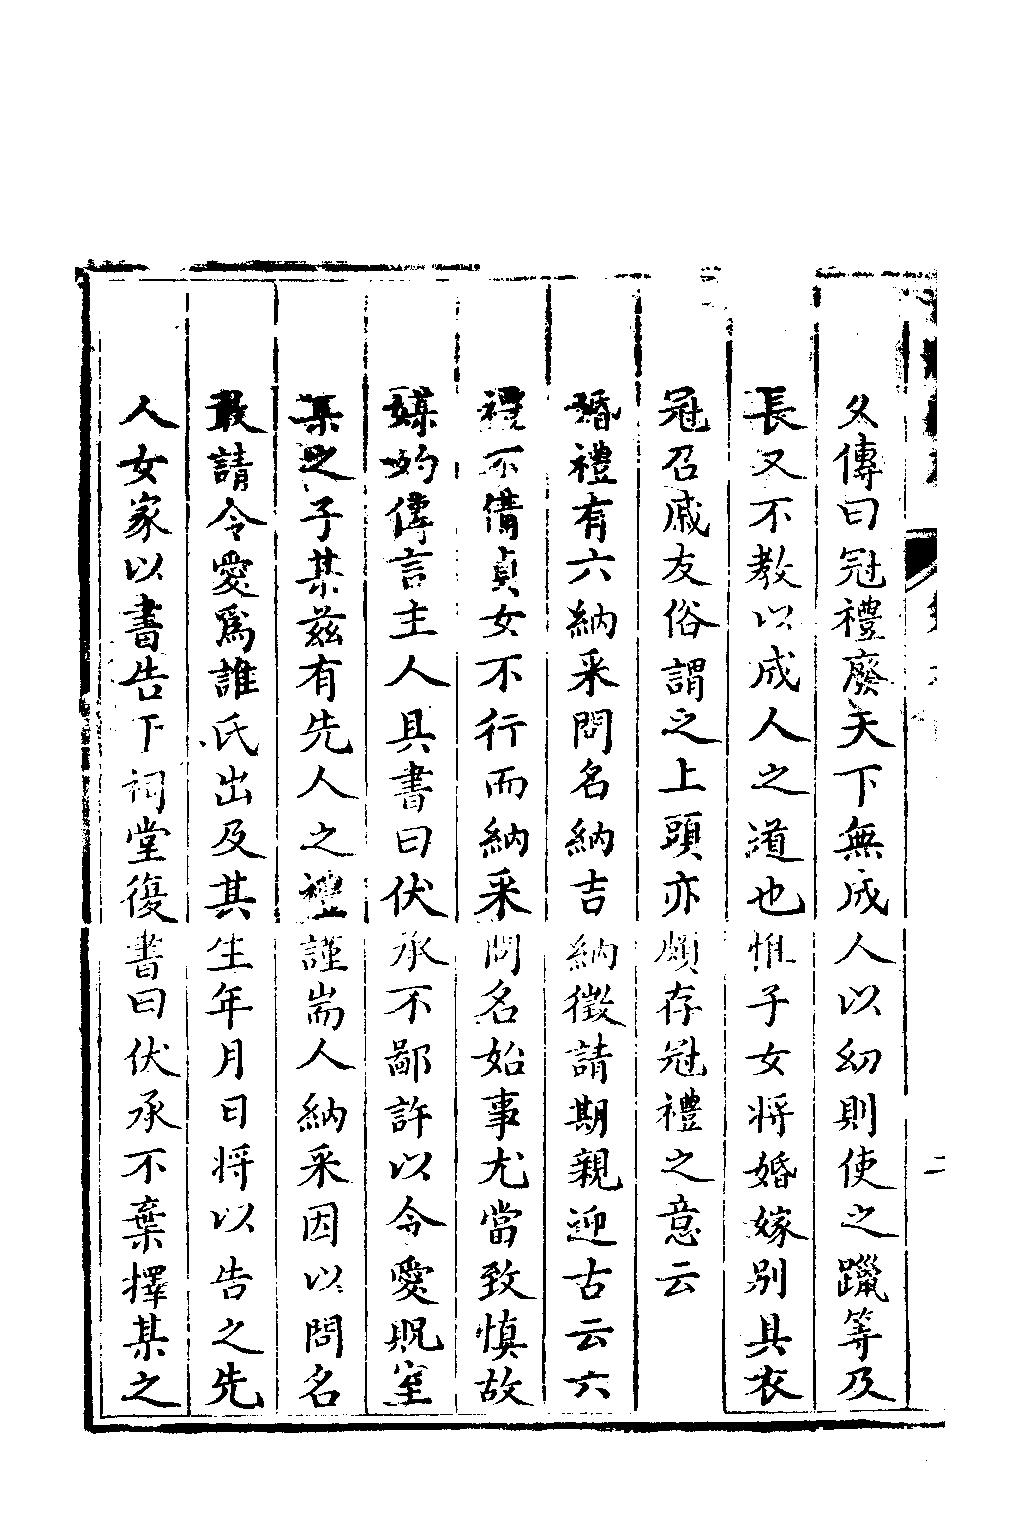 父傳曰冠禮廢天下無成人以幼則使之躐等及
長又不教以成人之道也惟子女將婚嫁別具衣
冠召戚友俗謂之上頭亦頗存冠禮之意云
婚禮有六納采問名納吉納徵請期親迎古云六
禮不備貞女不行而納采問名始事尤當致慎故
媒妁傳言主人具書曰伏承不鄙許以令愛貺室
某之子某茲有先人之禮謹耑人納采因以問名
敢請令愛為誰氏出及其生年月日將以告之先
人女家以書告下祠堂復書曰伏承不棄擇某之
二